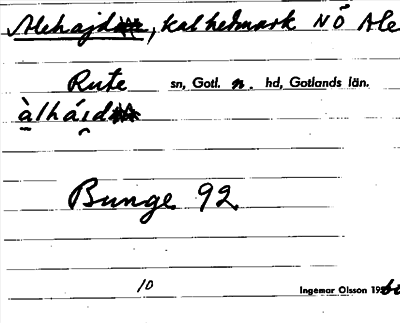 Alehajd, kalhedmark NÖ Ale
Rute sn, Gotl. n. hd, Gotlands län.
àlháid
Bunge 92
10
Ingemar Olsson 19